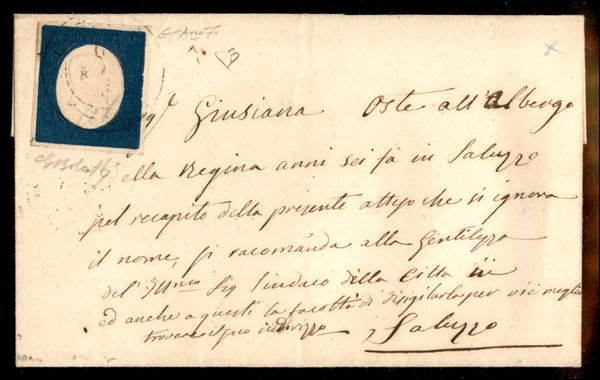 Giusiana Oste all'albergo
della Regina anni sei fà in Saluzzo
pel recapito della presente atteso che si ignora
il nome, si racomanda alla Gentilezza
del' Sig Sindaco della Città
ed anche a questi la facoltà di disigilarla per vie meglio
trovare il suo indirizzo Saluzzo